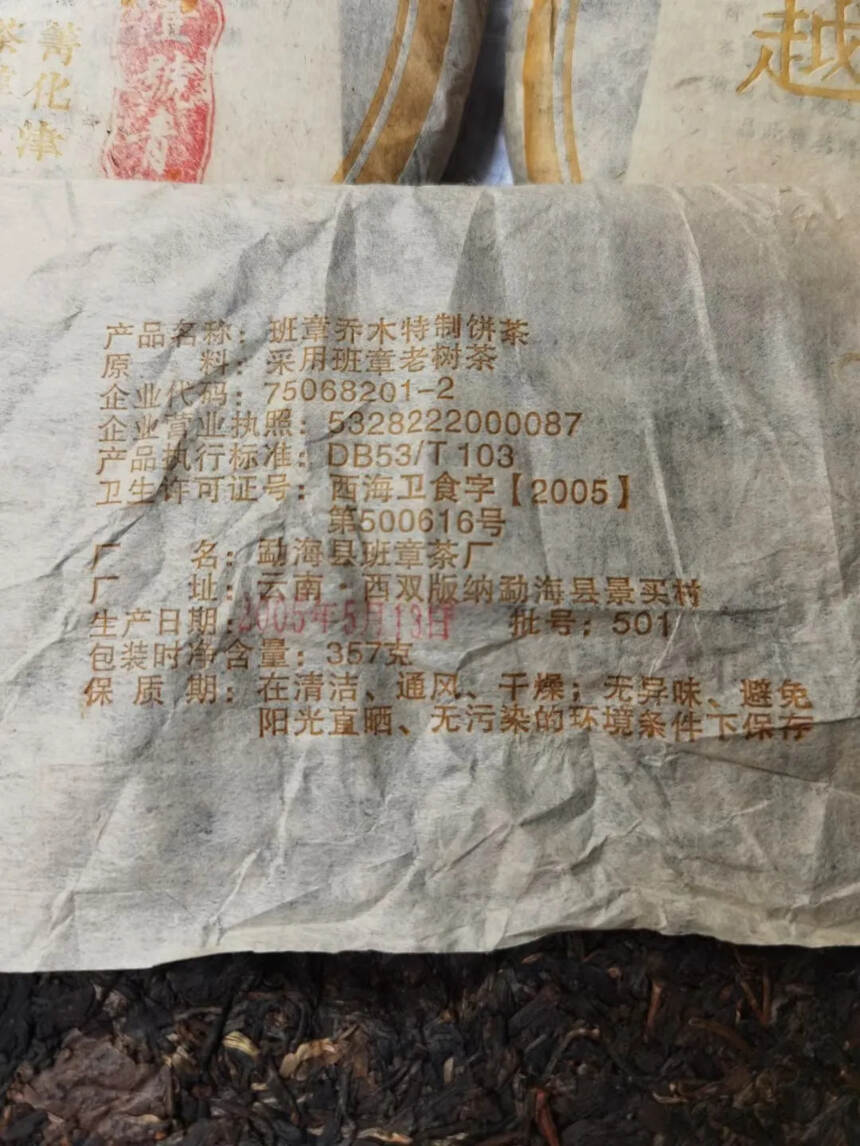 壹號青
菁化津
茶
越
产品名称：班章乔木特制饼茶
原　　料：采用班章老树茶
企业代码：75068201-2
企业营业执照：5328222000087
产品执行标准：DB53/T 103
卫生许可证号：西海卫食字【2005】
第500616号
厂　　名：勐海县班章茶厂
厂　　址：云南·西双版纳勐海县景买村
生产日期：2005年5月13日　批号：501
包装时净含量：357克
保 质 期：在清洁、通风、干燥；无异味、避免
阳光直晒、无污染的环境条件下保存